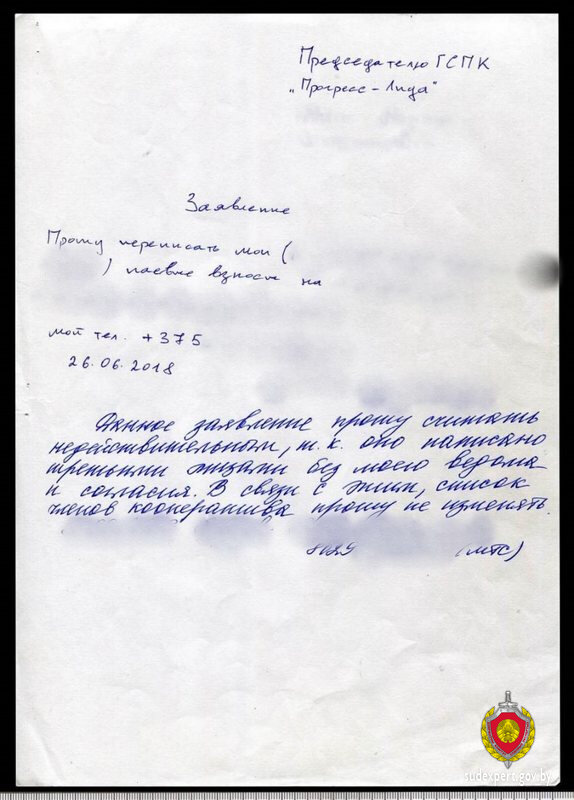 Председателю ГСПК
„Прогресс-Лида"
Заявление
Прошу переписать мои (
) паевые взносы на
мой тел. +375
26.06.2018
Данное заявление прошу считать
недействительным, т.к. оно написано
третьими лицами без моего ведома
и согласия. В связи с этим, список
членов кооператива прошу не изменять.
(МТС)
sudexpert.gov.by